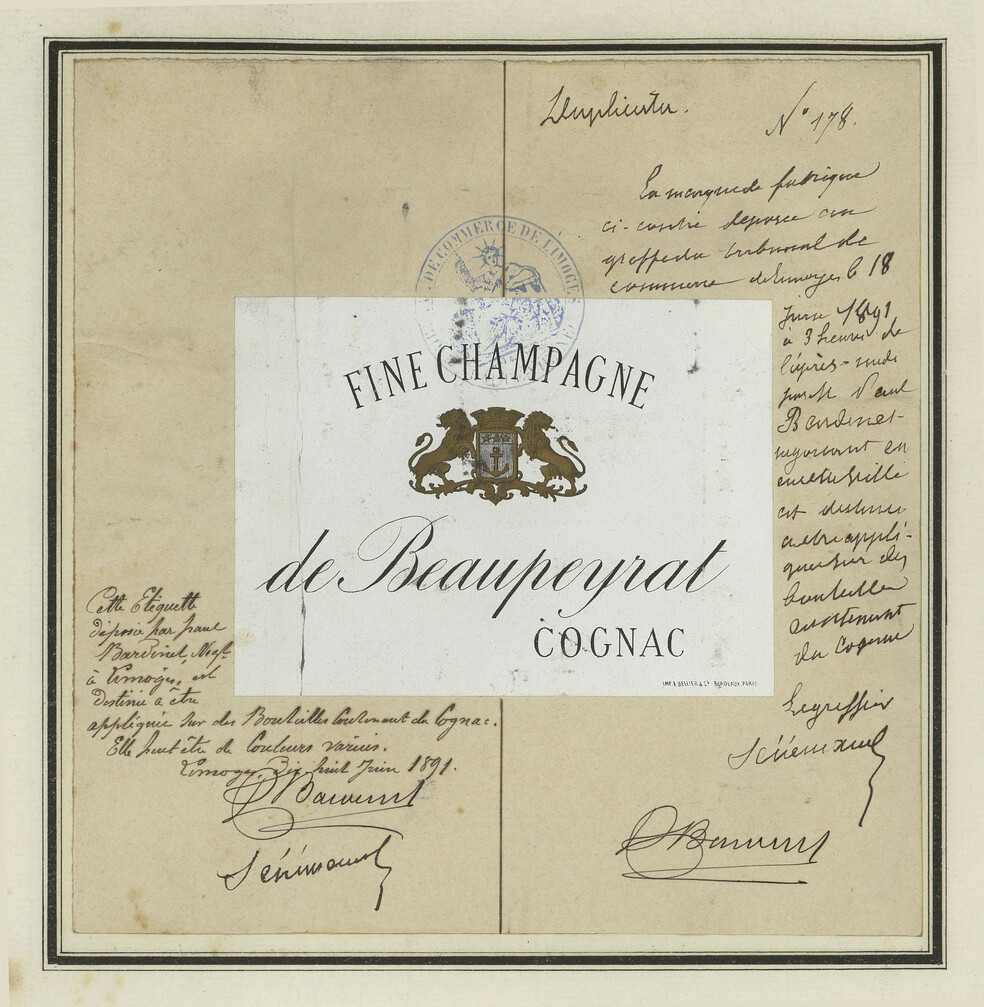 Duplicata.
N° 178.
La marque de fabrique
ci-contre déposée au
greffe du tribunal de
commerce de Limoges le 18
Juin 1891
à 3 heures de
l'après-midi
par M Paul
Bardinet
négociant en
cette ville
est destinée
à être appli-
quée sur des
bouteilles
contenant
du Cognac
Le greffier
DE COMMERCE DE LIMOGES
FINE CHAMPAGNE
de Beaupeyrat
COGNAC
IMP. BELLIER & Cie BORDEAUX, PARIS
Cette Etiquette
déposée par Paul
Bardinet, Négt
à Limoges, est
destinée à être
appliquée sur des Bouteilles contenant du Cognac.
Elle peut être de Couleurs variées.
Limoges, Dix huit Juin 1891.
PBardinet
PBardinet